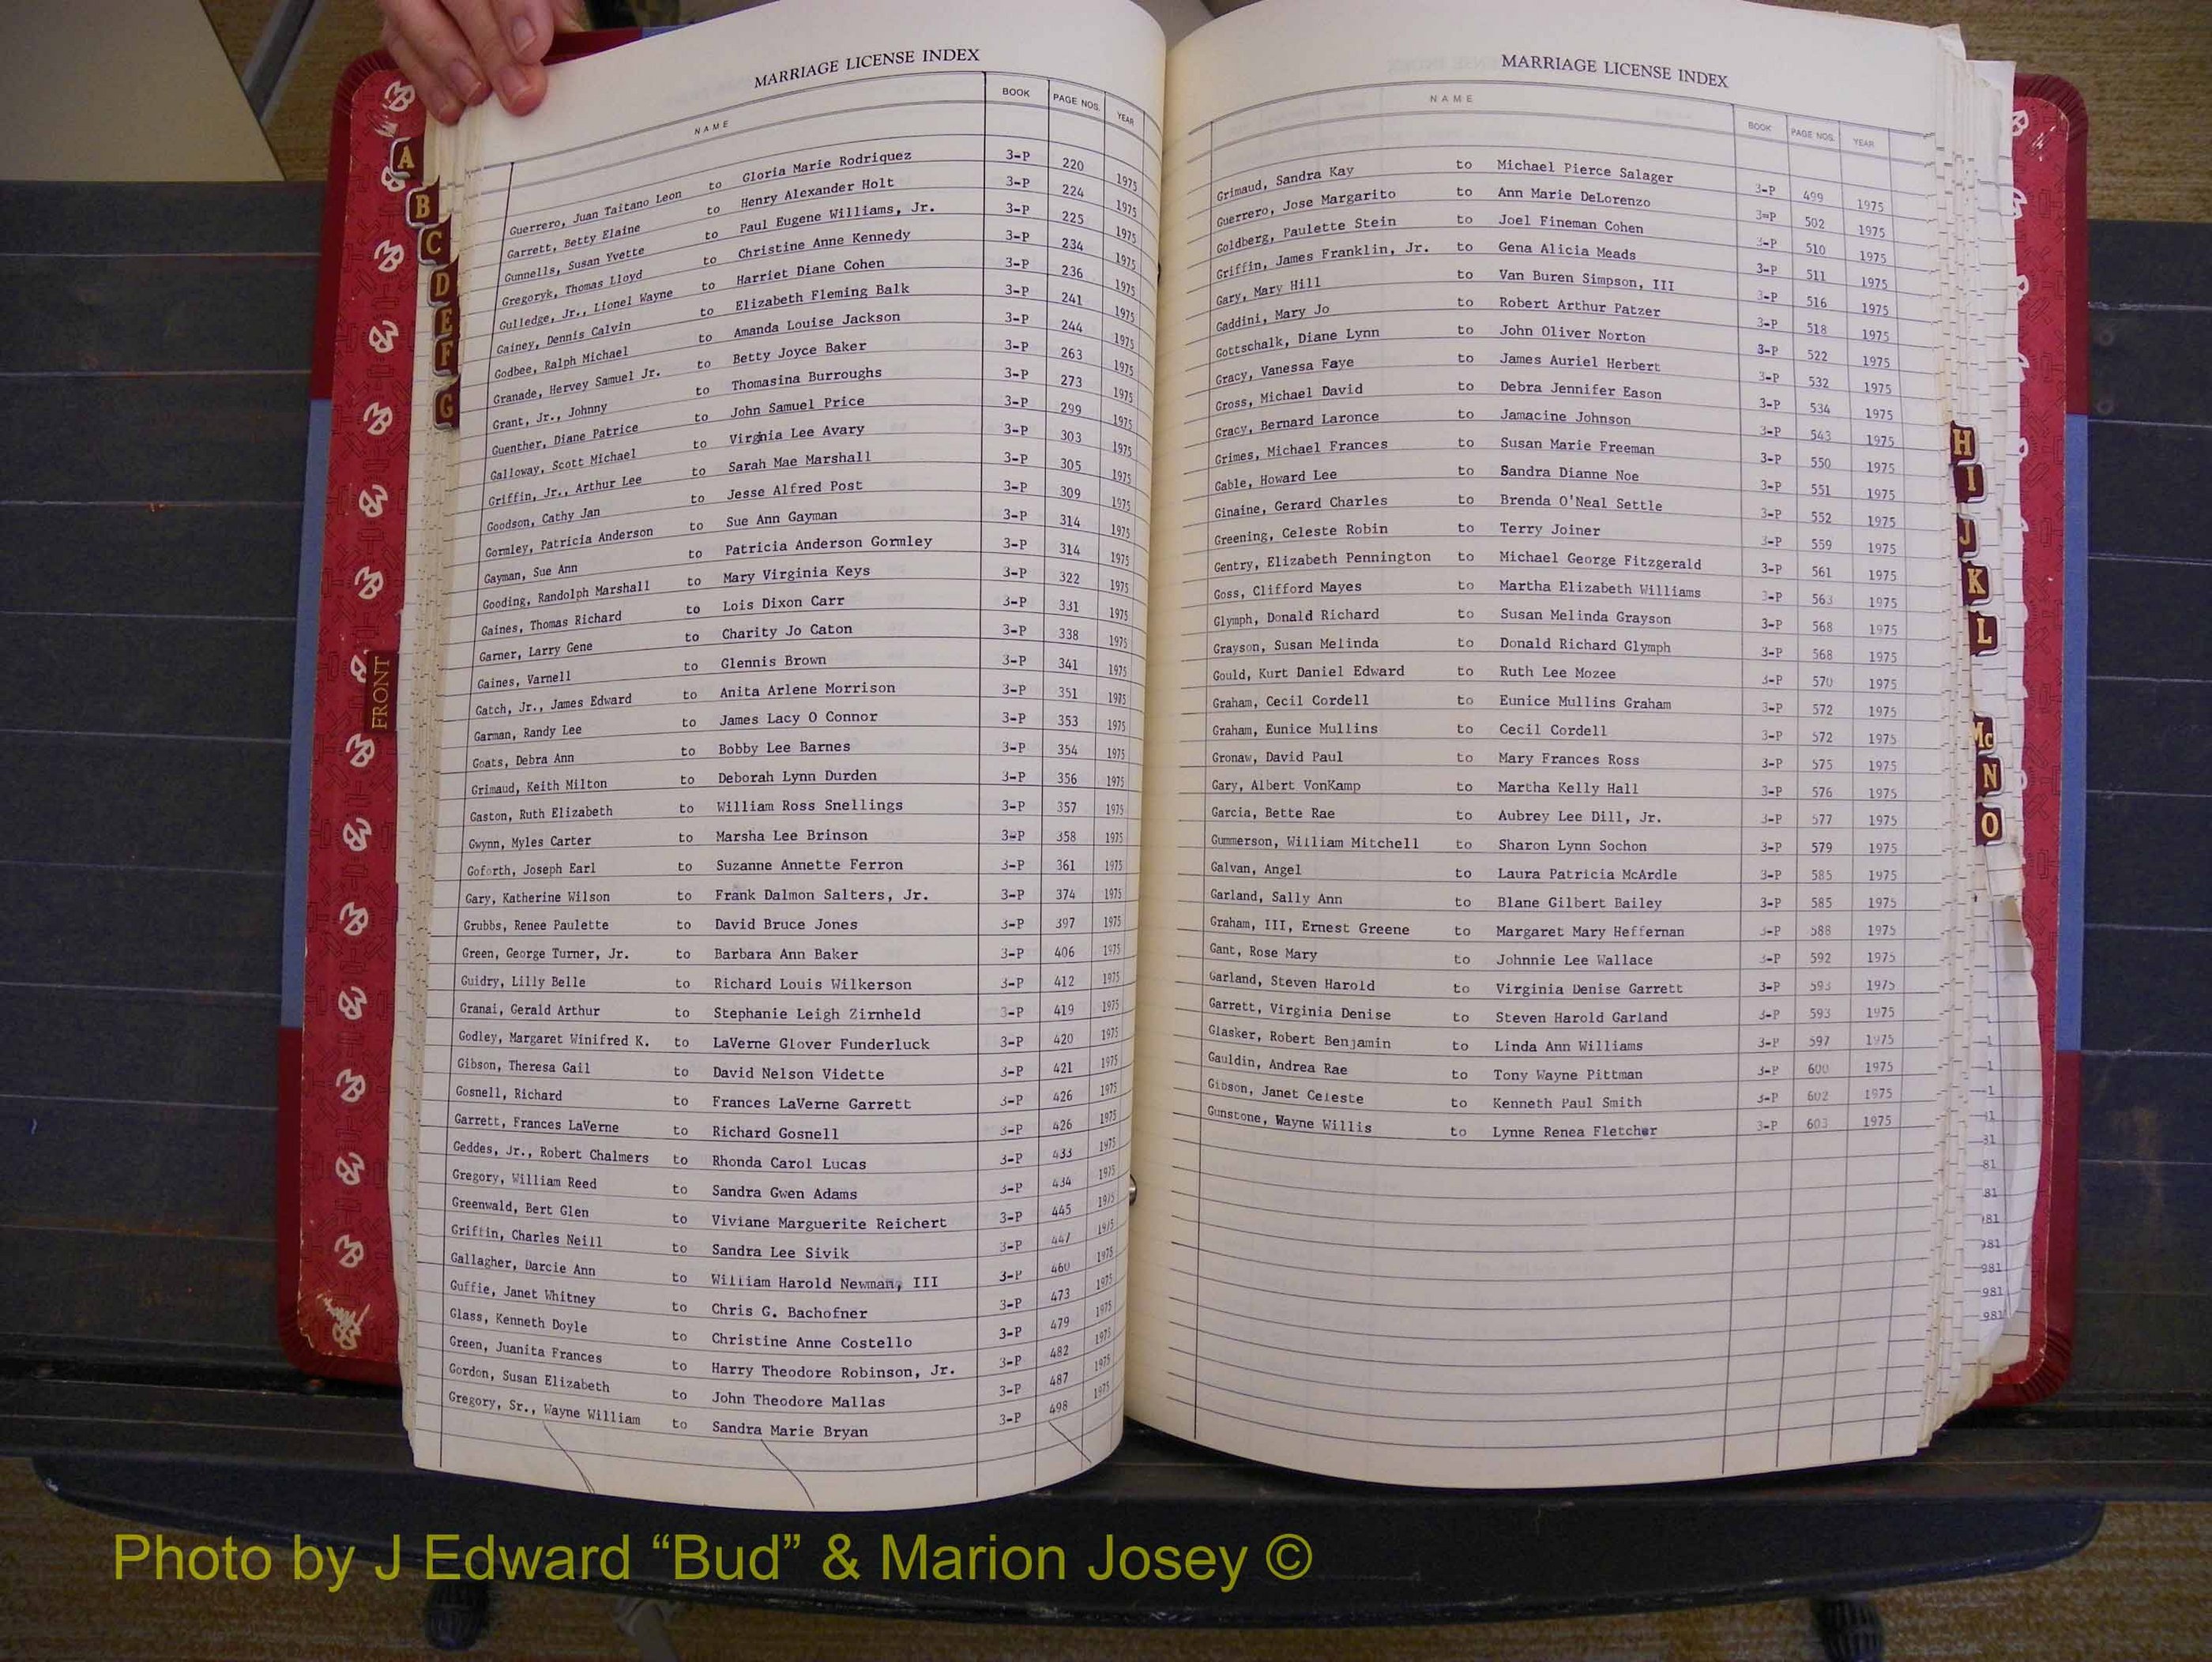 MARRIAGE LICENSE INDEX
NAME BOOK PAGE NOS. YEAR
Guerrero, Juan Taitano Leon to Gloria Marie Rodriquez 3-P 220 1975
Garrett, Betty Elaine to Henry Alexander Holt 3-P 224 1975
Gunnells, Susan Yvette to Paul Eugene Williams, Jr. 3-P 225 1975
Gregoryk, Thomas Lloyd to Christine Anne Kennedy 3-P 234 1975
Gulledge, Jr., Lionel Wayne to Harriet Diane Cohen 3-P 236 1975
Gainey, Dennis Calvin to Elizabeth Fleming Balk 3-P 241 1975
Godbee, Ralph Michael to Amanda Louise Jackson 3-P 244 1975
Granade, Hervey Samuel Jr. to Betty Joyce Baker 3-P 263 1975
Grant, Jr., Johnny to Thomasina Burroughs 3-P 273 1975
Guenther, Diane Patrice to John Samuel Price 3-P 299 1975
Galloway, Scott Michael to Virginia Lee Avary 3-P 303 1975
Griffin, Jr., Arthur Lee to Sarah Mae Marshall 3-P 305 1975
Goodson, Cathy Jan to Jesse Alfred Post 3-P 309 1975
Gormley, Patricia Anderson to Sue Ann Gayman 3-P 314 1975
Gayman, Sue Ann to Patricia Anderson Gormley 3-P 314 1975
Gooding, Randolph Marshall to Mary Virginia Keys 3-P 322 1975
Gaines, Thomas Richard to Lois Dixon Carr 3-P 331 1975
Garner, Larry Gene to Charity Jo Caton 3-P 338 1975
Gaines, Varnell to Glennis Brown 3-P 341 1975
Gatch, Jr., James Edward to Anita Arlene Morrison 3-P 351 1975
Garman, Randy Lee to James Lacy O Connor 3-P 353 1975
Goats, Debra Ann to Bobby Lee Barnes 3-P 354 1975
Grimaud, Keith Milton to Deborah Lynn Durden 3-P 356 1975
Gaston, Ruth Elizabeth to William Ross Snellings 3-P 357 1975
Gwynn, Myles Carter to Marsha Lee Brinson 3-P 358 1975
Goforth, Joseph Earl to Suzanne Annette Ferron 3-P 361 1975
Gary, Katherine Wilson to Frank Dalmon Salters, Jr. 3-P 374 1975
Grubbs, Renee Paulette to David Bruce Jones 3-P 397 1975
Green, George Turner, Jr. to Barbara Ann Baker 3-P 406 1975
Guidry, Lilly Belle to Richard Louis Wilkerson 3-P 412 1975
Granai, Gerald Arthur to Stephanie Leigh Zirnheld 3-P 419 1975
Godley, Margaret Winifred K. to LaVerne Glover Funderluck 3-P 420 1975
Gibson, Theresa Gail to David Nelson Vidette 3-P 421 1975
Gosnell, Richard to Frances LaVerne Garrett 3-P 426 1975
Garrett, Frances LaVerne to Richard Gosnell 3-P 426 1975
Geddes, Jr., Robert Chalmers to Rhonda Carol Lucas 3-P 433 1975
Gregory, William Reed to Sandra Gwen Adams 3-P 434 1975
Greenwald, Bert Glen to Viviane Marguerite Reichert 3-P 445 1975
Griffin, Charles Neill to Sandra Lee Sivik 3-P 447 1975
Gallagher, Darcie Ann to William Harold Newman, III 3-P 460 1975
Guffie, Janet Whitney to Chris G. Bachofner 3-P 473 1975
Glass, Kenneth Doyle to Christine Anne Costello 3-P 479 1975
Green, Juanita Frances to Harry Theodore Robinson, Jr. 3-P 482 1975
Gordon, Susan Elizabeth to John Theodore Mallas 3-P 487 1975
Gregory, Sr., Wayne William to Sandra Marie Bryan 3-P 498 1975
MARRIAGE LICENSE INDEX
NAME BOOK PAGE NOS. YEAR
Grimaud, Sandra Kay to Michael Pierce Salager 3-P 499 1975
Guerrero, Jose Margarito to Ann Marie DeLorenzo 3-P 502 1975
Goldberg, Paulette Stein to Joel Fineman Cohen 3-P 510 1975
Griffin, James Franklin, Jr. to Gena Alicia Meads 3-P 511 1975
Gary, Mary Hill to Van Buren Simpson, III 3-P 516 1975
Gaddini, Mary Jo to Robert Arthur Patzer 3-P 518 1975
Gottschalk, Diane Lynn to John Oliver Norton 3-P 522 1975
Gracy, Vanessa Faye to James Auriel Herbert 3-P 532 1975
Gross, Michael David to Debra Jennifer Eason 3-P 534 1975
Gracy, Bernard Laronce to Jamacine Johnson 3-P 543 1975
Grimes, Michael Frances to Susan Marie Freeman 3-P 550 1975
Gable, Howard Lee to Sandra Dianne Noe 3-P 551 1975
Ginaine, Gerard Charles to Brenda O'Neal Settle 3-P 552 1975
Greening, Celeste Robin to Terry Joiner 3-P 559 1975
Gentry, Elizabeth Pennington to Michael George Fitzgerald 3-P 561 1975
Goss, Clifford Mayes to Martha Elizabeth Williams 3-P 563 1975
Glymph, Donald Richard to Susan Melinda Grayson 3-P 568 1975
Grayson, Susan Melinda to Donald Richard Glymph 3-P 568 1975
Gould, Kurt Daniel Edward to Ruth Lee Mozee 3-P 570 1975
Graham, Cecil Cordell to Eunice Mullins Graham 3-P 572 1975
Graham, Eunice Mullins to Cecil Cordell 3-P 572 1975
Gronaw, David Paul to Mary Frances Ross 3-P 575 1975
Gary, Albert VonKamp to Martha Kelly Hall 3-P 576 1975
Garcia, Bette Rae to Aubrey Lee Dill, Jr. 3-P 577 1975
Gummerson, William Mitchell to Sharon Lynn Sochon 3-P 579 1975
Galvan, Angel to Laura Patricia McArdle 3-P 585 1975
Garland, Sally Ann to Blane Gilbert Bailey 3-P 585 1975
Graham, III, Ernest Greene to Margaret Mary Heffernan 3-P 588 1975
Gant, Rose Mary to Johnnie Lee Wallace 3-P 592 1975
Garland, Steven Harold to Virginia Denise Garrett 3-P 593 1975
Garrett, Virginia Denise to Steven Harold Garland 3-P 593 1975
Glasker, Robert Benjamin to Linda Ann Williams 3-P 597 1975
Gauldin, Andrea Rae to Tony Wayne Pittman 3-P 600 1975
Gibson, Janet Celeste to Kenneth Paul Smith 3-P 602 1975
Gunstone, Wayne Willis to Lynne Renea Fletcher 3-P 603 1975
A
B
C
D
E
F
G
FRONT
H
I
J
K
L
Mc
N
O
Photo by J Edward “Bud” & Marion Josey ©